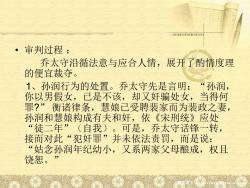 • 审判过程：
乔太守沿循法意与应合人情，展开了酌情度理
的便宜裁夺。
1、孙润行为的处置。乔太守先是言明：“孙润，
你以男假女，已是不该，却又奸骗处女，当得何
罪?”衡诸律条，慧娘已受聘裴家而为裴政之妻，
孙润和慧娘构成有夫和奸，依《宋刑统》应处
“徒二年”（自我）。可是，乔太守话锋一转，
接而对此“犯奸罪”并未依法责罚，而是说：
“姑念孙润年纪幼小，又系两家父母酿成，权且
饶恕。”